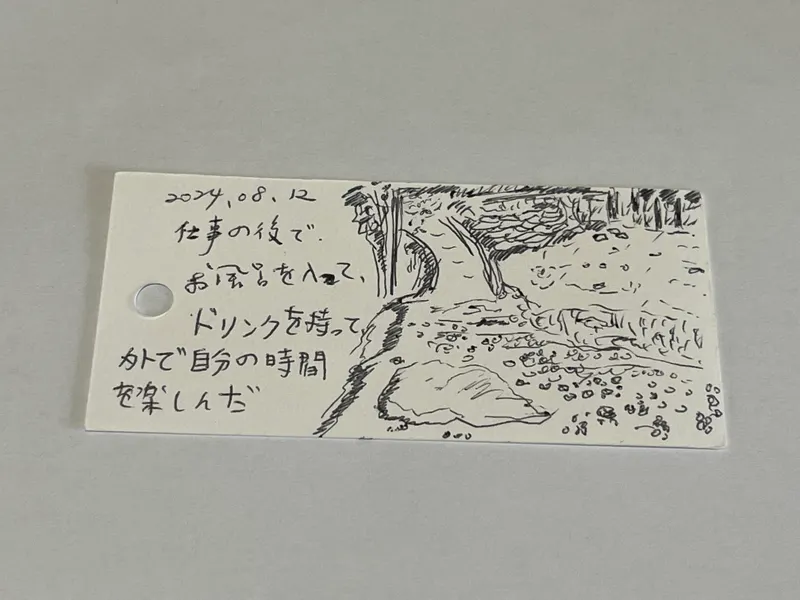 2024.08.12
仕事の後で.
お風呂を入って、
ドリンクを持って
外で自分の時間
を楽しんだ